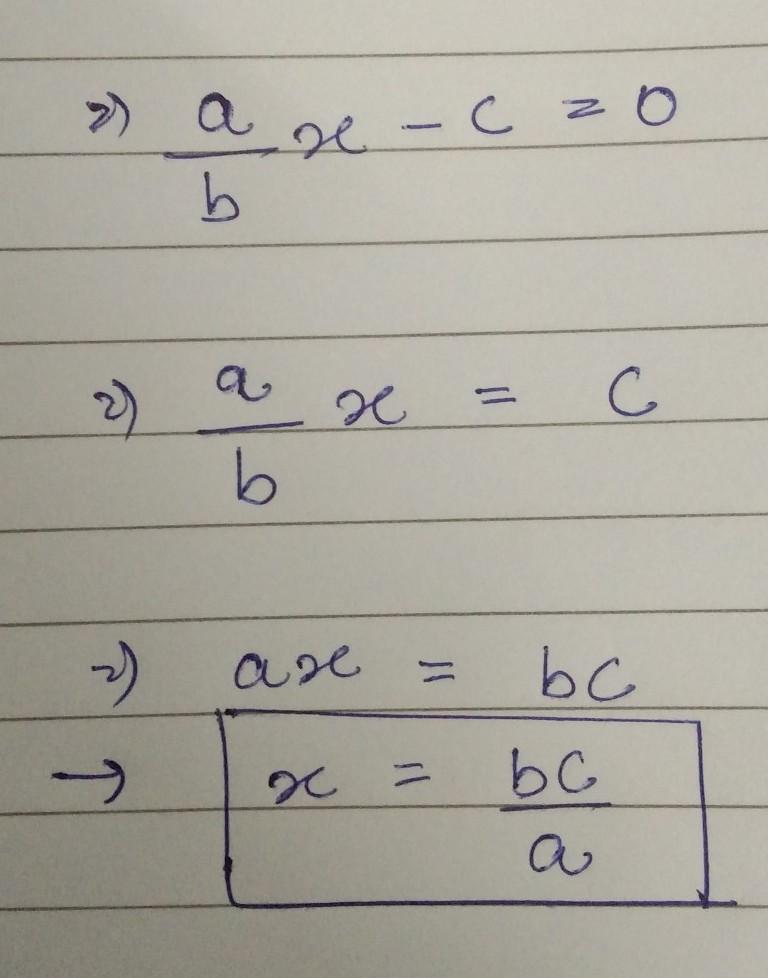 ⇒ a/b x - c = 0
⇒ a/b x = c
⇒ ax = bc
→ x = bc/a